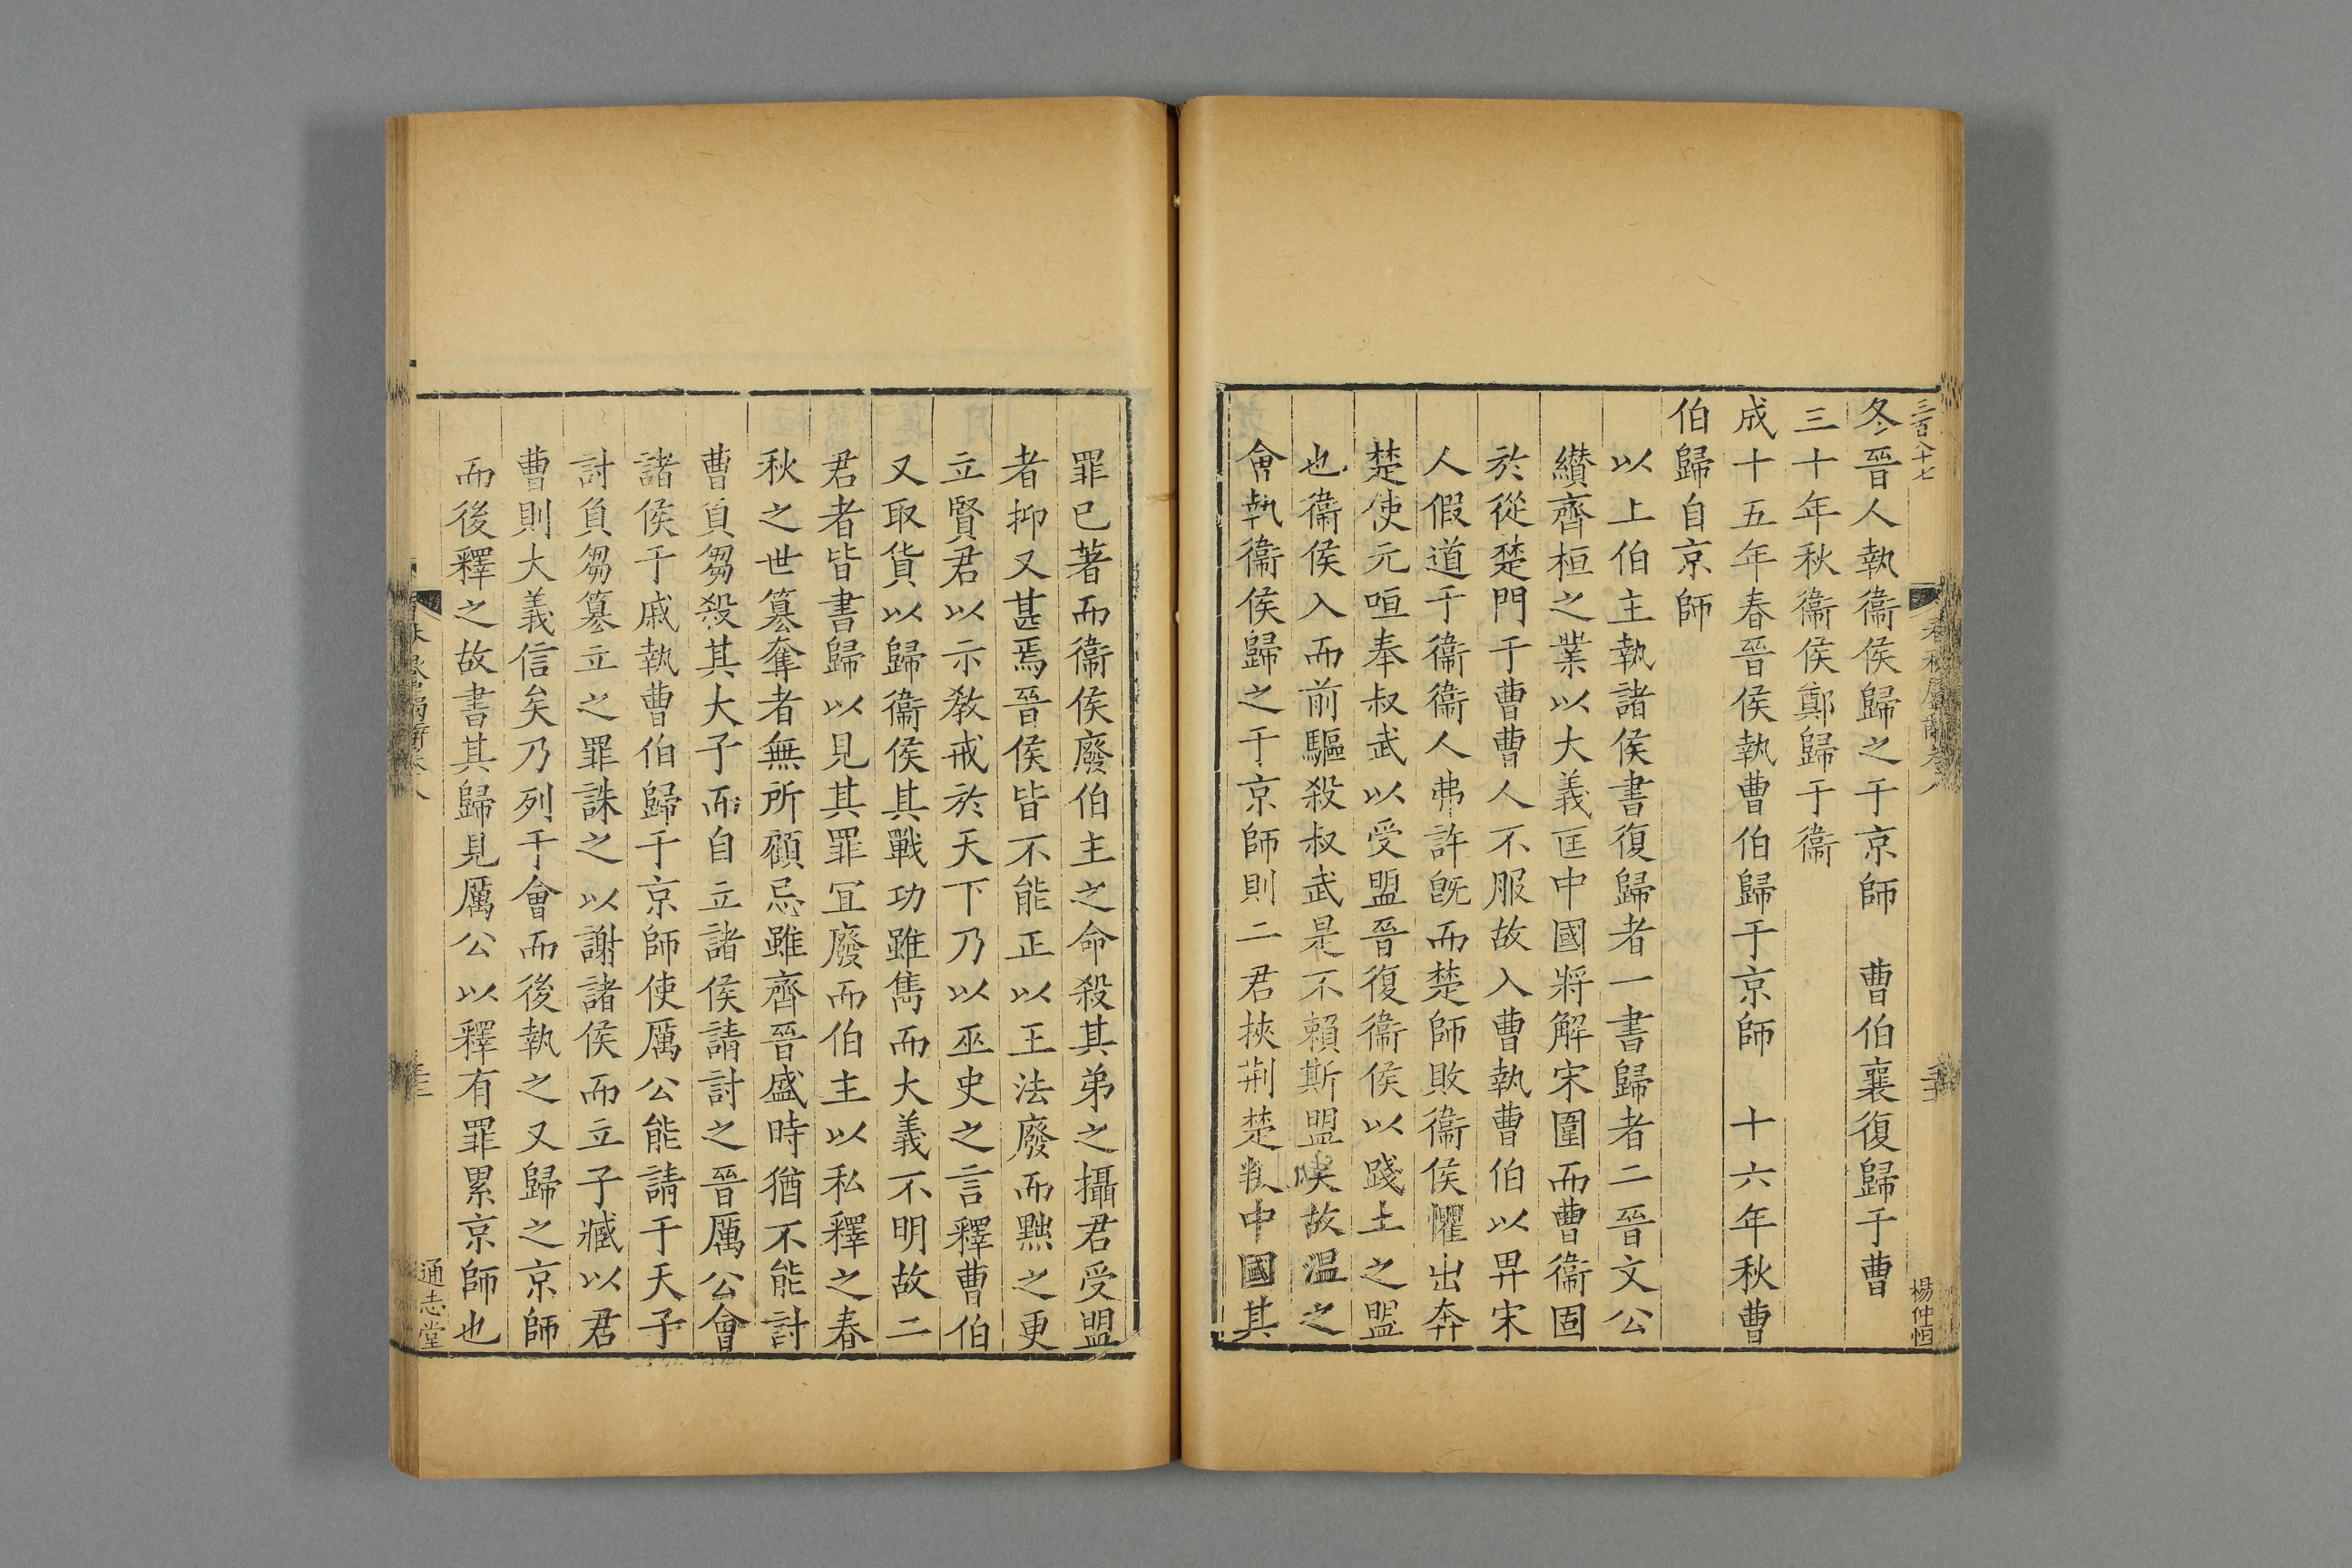 三百八十七
冬晉人執衞侯歸之于京師　曹伯襄復歸于曹
三十年秋衞侯鄭歸于衞
成十五年春晉侯執曹伯歸于京師　十六年秋曹
伯歸自京師
以上伯主執諸侯書復歸者一書歸者二晉文公
纉齊桓之業以大義匡中國將解宋圍而曹衞固
於從楚門于曹曹人不服故入曹執曹伯以畀宋
人假道于衞衞人弗許旣而楚師敗衞侯懼出奔
楚使元咺奉叔武以受盟晉復衞侯以踐土之盟
也衞侯入而前驅殺叔武是不賴斯盟矣故温之
會執衞侯歸之于京師則二君挾荆楚判中國其
楊仲恒
罪已著而衞侯廢伯主之命殺其弟之攝君受盟
者抑又甚焉晉侯皆不能正以王法廢而黜之更
立賢君以示教戒於天下乃以巫史之言釋曹伯
又取貨以歸衞侯其戰功雖雋而大義不明故二
君者皆書歸以見其罪冝廢而伯主以私釋之春
秋之世篡奪者無所顧忌雖齊晉盛時猶不能討
曹負芻殺其大子而自立諸侯請討之晉厲公會
諸侯于戚執曹伯歸于京師使厲公能請于天子
討負芻篡立之罪誅之以謝諸侯而立子臧以君
曹則大義信矣乃列于會而後執之又歸之京師
而後釋之故書其歸見厲公以釋有罪累京師也
通志堂